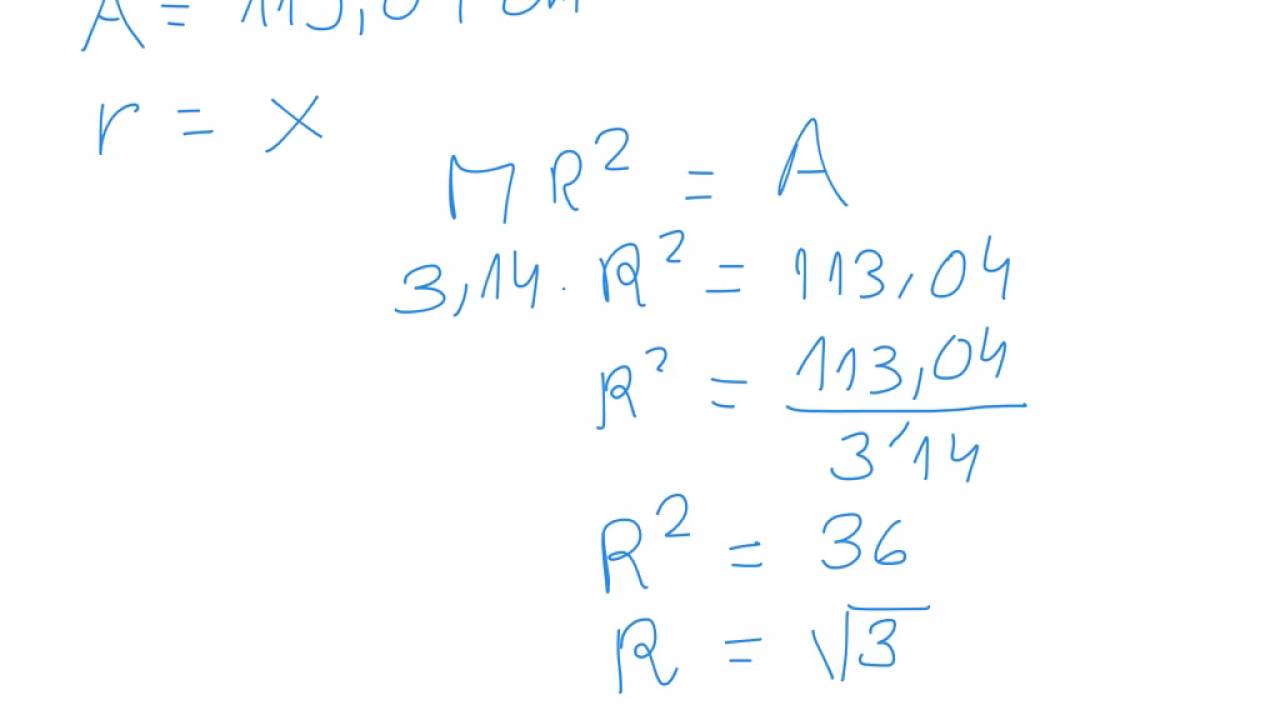 A = 113,04 cm
r = x
π R² = A
3,14 · R² = 113,04
R² = 113,04 / 3'14
R² = 36
R = √3